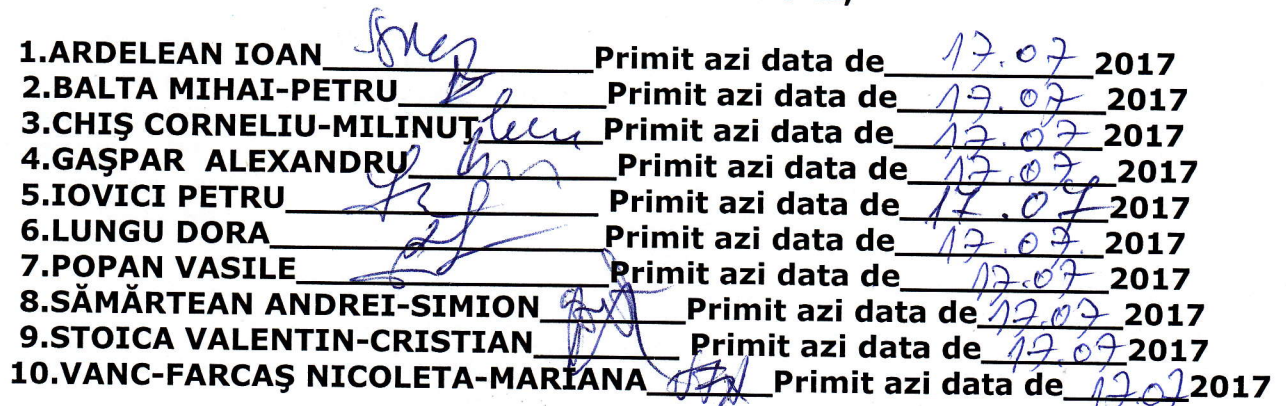 1.ARDELEAN IOAN Primit azi data de 17.07 2017
2.BALTA MIHAI-PETRU Primit azi data de 17.07 2017
3.CHIŞ CORNELIU-MILINUŢ Primit azi data de 17.07 2017
4.GAŞPAR ALEXANDRU Primit azi data de 17.07 2017
5.IOVICI PETRU Primit azi data de 17.07 2017
6.LUNGU DORA Primit azi data de 17.07. 2017
7.POPAN VASILE Primit azi data de 17.07 2017
8.SĂMĂRTEAN ANDREI-SIMION Primit azi data de 17.07 2017
9.STOICA VALENTIN-CRISTIAN Primit azi data de 17.07 2017
10.VANC-FARCAŞ NICOLETA-MARIANA Primit azi data de 17.07 2017